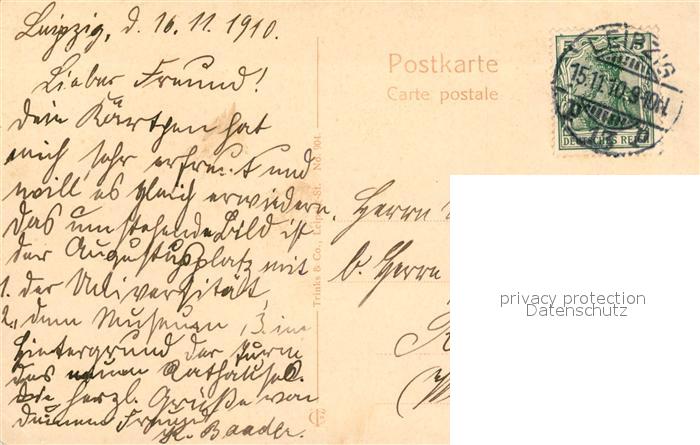 Leipzig, d. 16.11.1910.
Lieber Freund!
Dein Kärtchen hat
mich sehr erfreut und
will es gleich erwidern.
Das umstehende Bild ist
der Augustusplatz mit
1. der Universität,
2. dem Museum, 3. im
Hintergrund der Turm
des neuen Rathauses.
Die herzl. Grüße von
deinem Freund
K. Baader.
Trinks & Co., Leipzig-St. No. 904.
Postkarte
Carte postale
5 5
LEIPZIG
15.11.10.9-10N.
13
DEUTSCHES REICH
Herrn
b. Herrn
privacy protection
Datenschutz